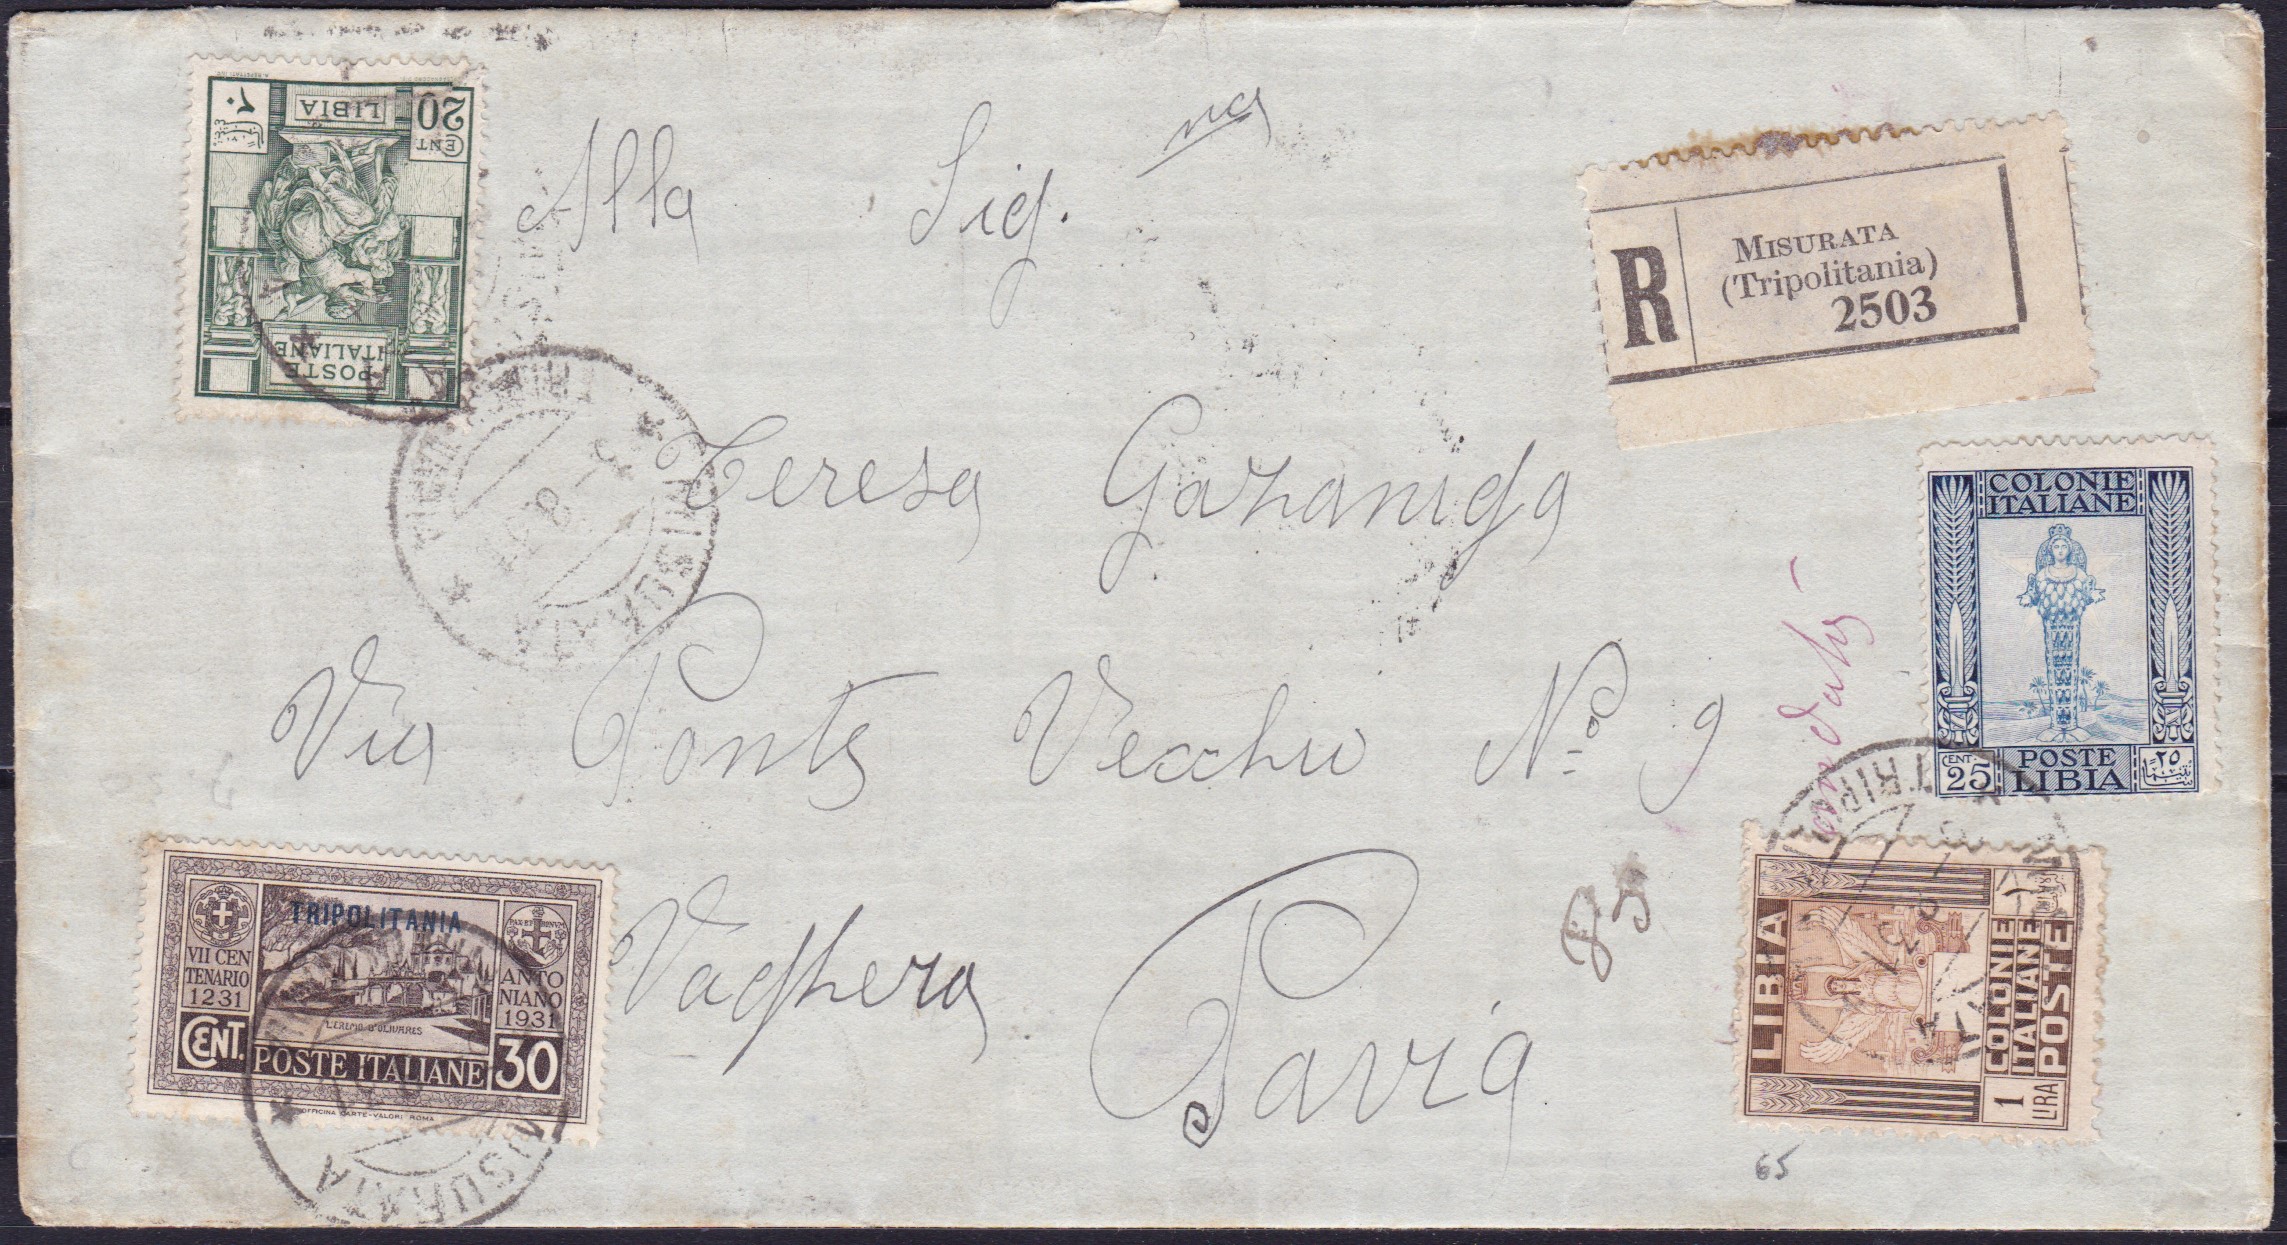 CENT
20
LIBIA
٢٠
POSTE
ITALIANE
Alla Sig.na
R
MISURATA
(Tripolitania)
2503
Teresa Gazaniga
MISURATA
COLONIE
ITALIANE
CENT. 25
POSTE
LIBIA
٢٥
Via Ponte Vecchio No. 9
Voghera
Pavia
TRIPOLITANIA
VII CEN
TENARIO
1231
PAX ET BONUM
ANTO
NIANO
1931
L'EREMO D'OLIVARES
CENT. POSTE ITALIANE 30
OFFICINA CARTE-VALORI ROMA
MISURATA
LIBIA
COLONIE
ITALIANE
POSTE
1 LIRA
65